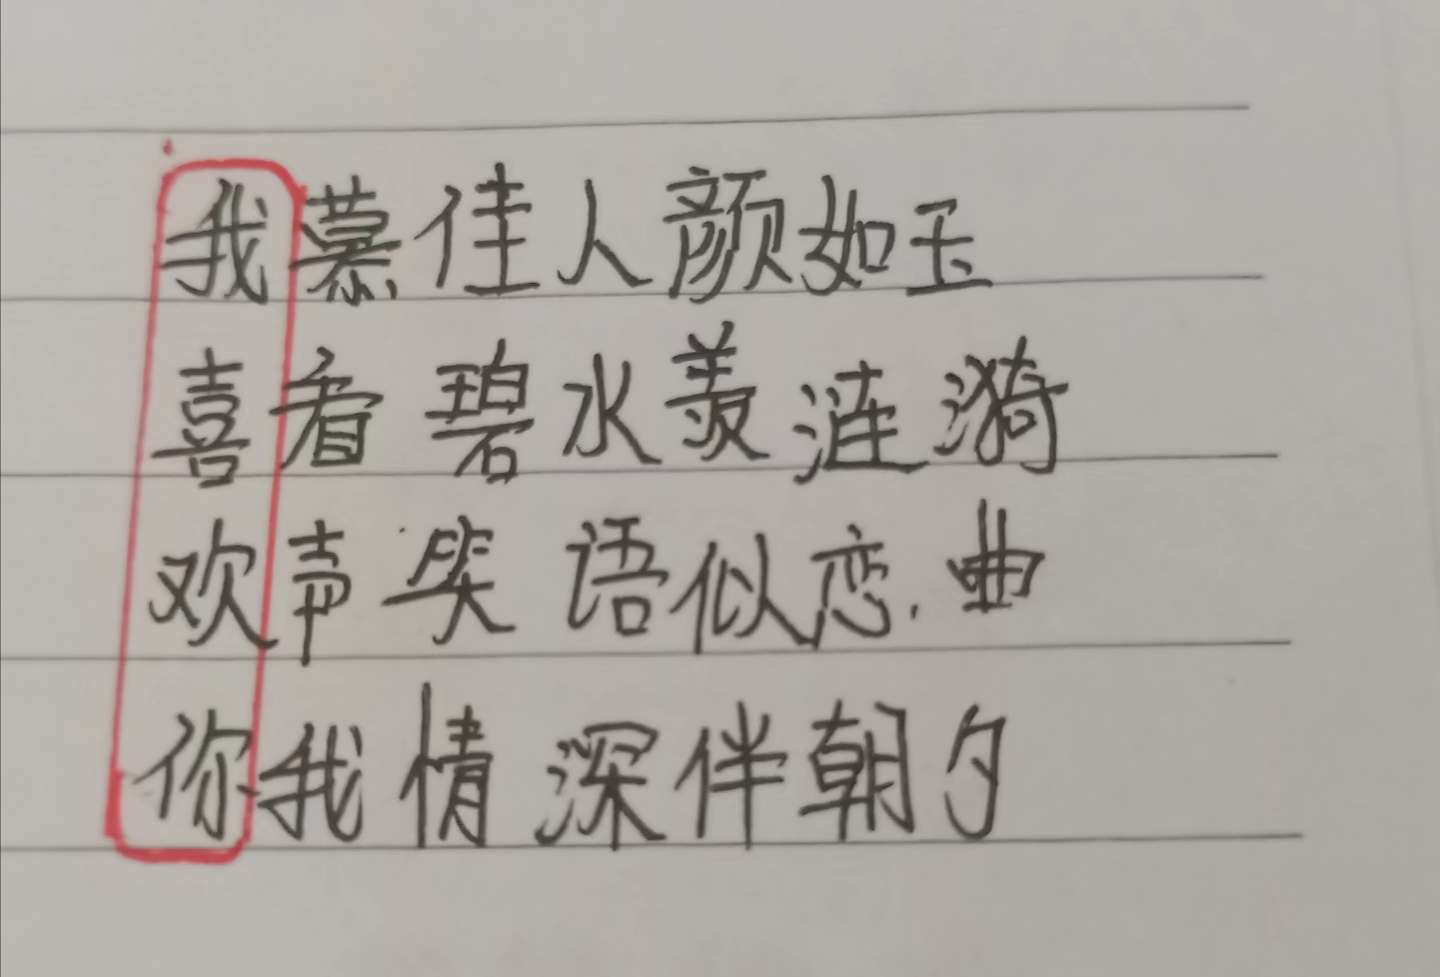 我慕佳人颜如玉
喜看碧水羡涟漪
欢声笑语似恋曲
你我情深伴朝夕